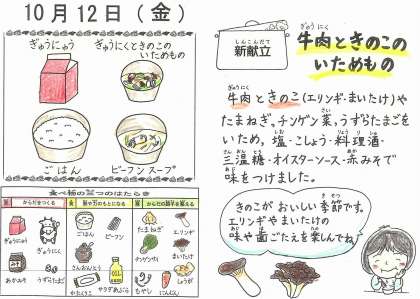 10月12日（金）
ぎゅうにゅう
ぎゅうにくときのこの
いためもの
ごはん
ビーフンスープ
新献立
牛肉ときのこの
いためもの
牛肉ときのこ(エリンギ・まいたけ)や
たまねぎ。チンゲン菜。うずらたまごを
いため。塩・こしょう・料理酒・
三温糖・オイスターソース・赤みそで
味をつけました。
きのこがおいしい季節です。
エリンギやまいたけの
味や歯ごたえを楽しんでね
食べ物の三つのはたらき
からだをつくる
熱や力のもとになる
からだの調子を整える
ぎゅうにゅう
ぎゅうにく
あかみそ
うずらたまご
ごはん
ビーフン
さんおんとう
かたくりこ
サラダあぶら
たまねぎ
エリンギ
チンゲンサイ
まいたけ
しょうが
もやし
にんじん